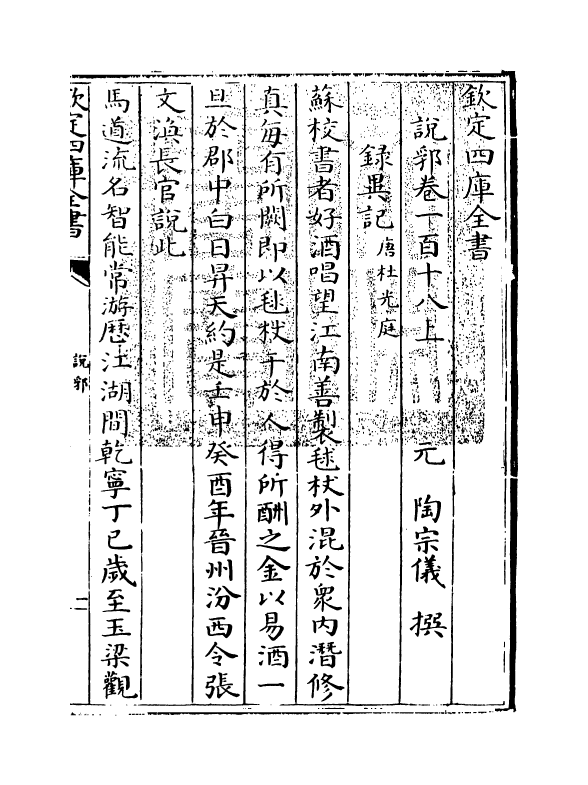 欽定四庫全書
說郛卷一百十八上　元　陶宗儀　撰
錄異記唐杜光庭
蘇校書者好酒唱望江南善製毬杖外混於衆內潛修
真每有所闕即以毬杖干於人得所酬之金以易酒一
旦於郡中白日昇天約是壬申癸酉年晉州汾西令張
文渙長官說此
馬道流名智能常游歷江湖間乾寧丁巳歲至玉梁觀
欽定四庫全書
說郛
二